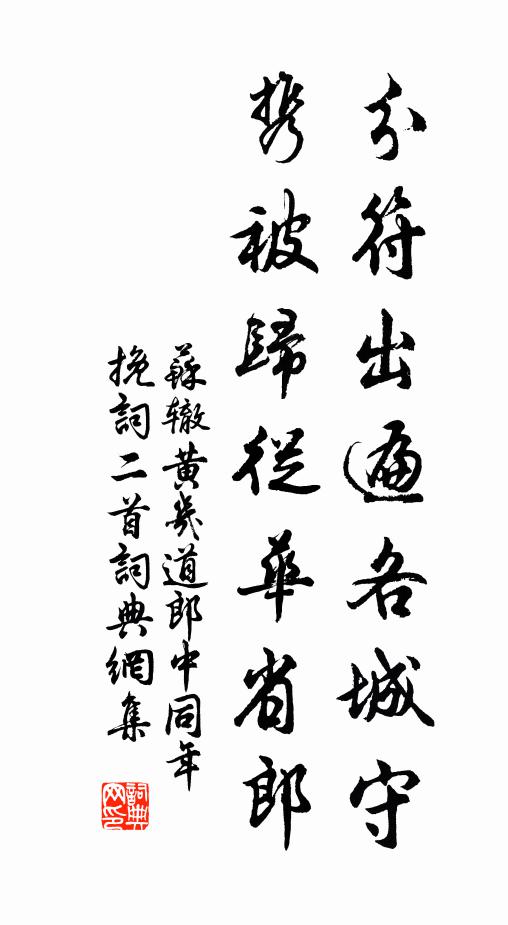 分符出遍名城守
携被歸從華省郎
蘇辙黄幾道郎中同年
挽詞二首詞典網集
詞典网印